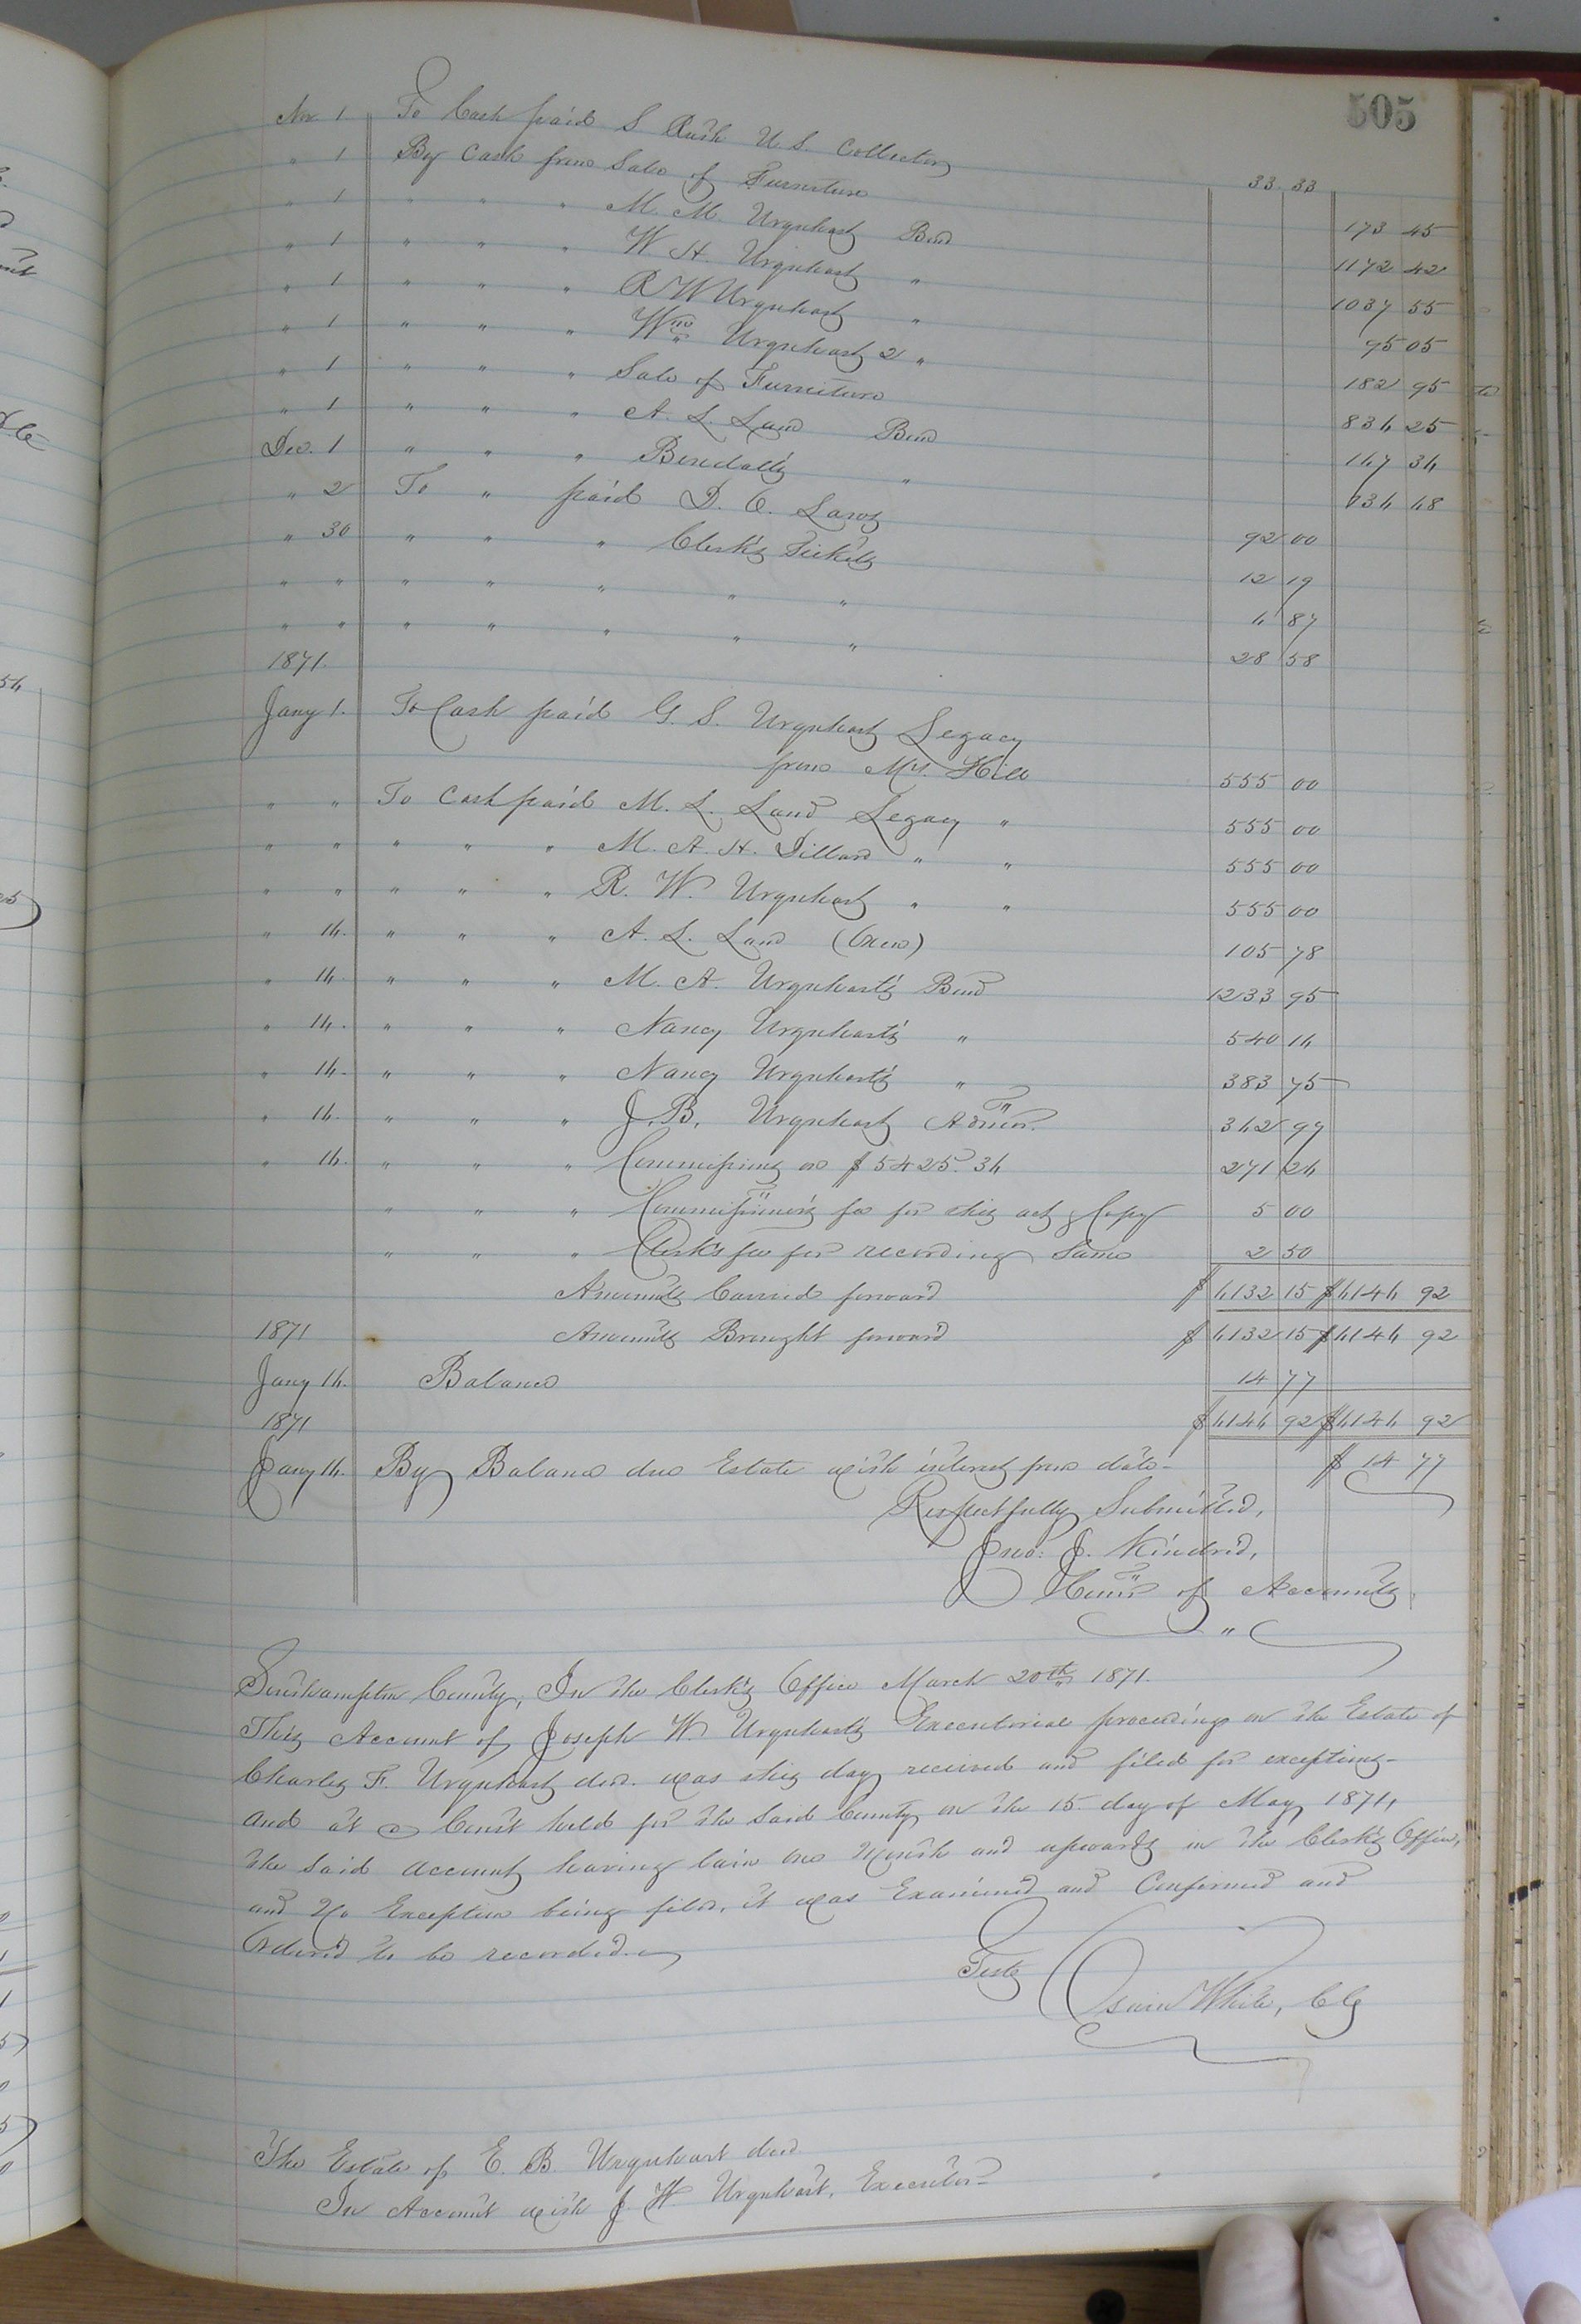 505
Nov 1 To Cash paid S Rush U. S. Collector 33 33
" 1 By Cash from Sale of Furniture 173 45
" 1 " " " M. M. Urquhart Bond 1172 42
" 1 " " " W. H. Urquhart " 1037 55
" 1 " " " R W Urquhart " 95 05
" 1 " " " Wm Urquhart 2 " 182 95
" 1 " " " Sale of Furniture 834 25
" 1 " " " A. L. Land Bond 147 34
Dec. 1 " " " " 48
" 2 To " paid D. C. 92 00
" 30 " " " Clerk's Tickets 12 19
" " " " " " " 4 87
" " " " " " " 28 58
1871.
Jany 1. To Cash paid G. S. Urquhart Legacy
from Mrs. Hill 555 00
" " To Cash paid M. L. Land Legacy " 555 00
" " " " " M. A. H. Dillard " " 555 00
" " " " " R. W. Urquhart " " 555 00
" 14. " " " A. L. Land 105 78
" 14. " " " M. A. Urquhart's Bond 1233 95
" 14. " " " Nancy Urquhart's " 540 14
" 14. " " " Nancy Urquhart's " 383 75
" 14. " " " J. B. Urquhart Admor. 342 99
" 14. " " " Commissions on $5425.34 271 24
" " " Commissioner's fee for this act & Copy 5 00
" " " Clerk's fee for recording Same 2 50
Amounts Carried forward $ 4132 15 $ 4144 92
1871 Amounts Brought forward $ 4132 15 $ 4144 92
Jany 14. Balance 14 77
1871 $ 4144 92 $ 4144 92
Jany 14. By Balance due Estate with interest from date $ 14 77
Respectfully Submitted,
Jno: J. Kindred,
Comr of Accounts
"
Southampton County; In the Clerk's Office March 20th 1871.
This Account of Joseph W. Urquhart's Executorial proceedings on the Estate of
Charles F. Urquhart decd. was this day received and filed for exceptions
and at a Court held for the Said County on the 15 day of May 1871,
the Said Account having lain one Month and upwards in the Clerk's Office,
and No Exception being filed, it was Examined and Confirmed and
Ordered to be recorded.
Teste
White, Clk
The Estate of E. B. Urquhart decd
In Account with J W Urquhart, Executor